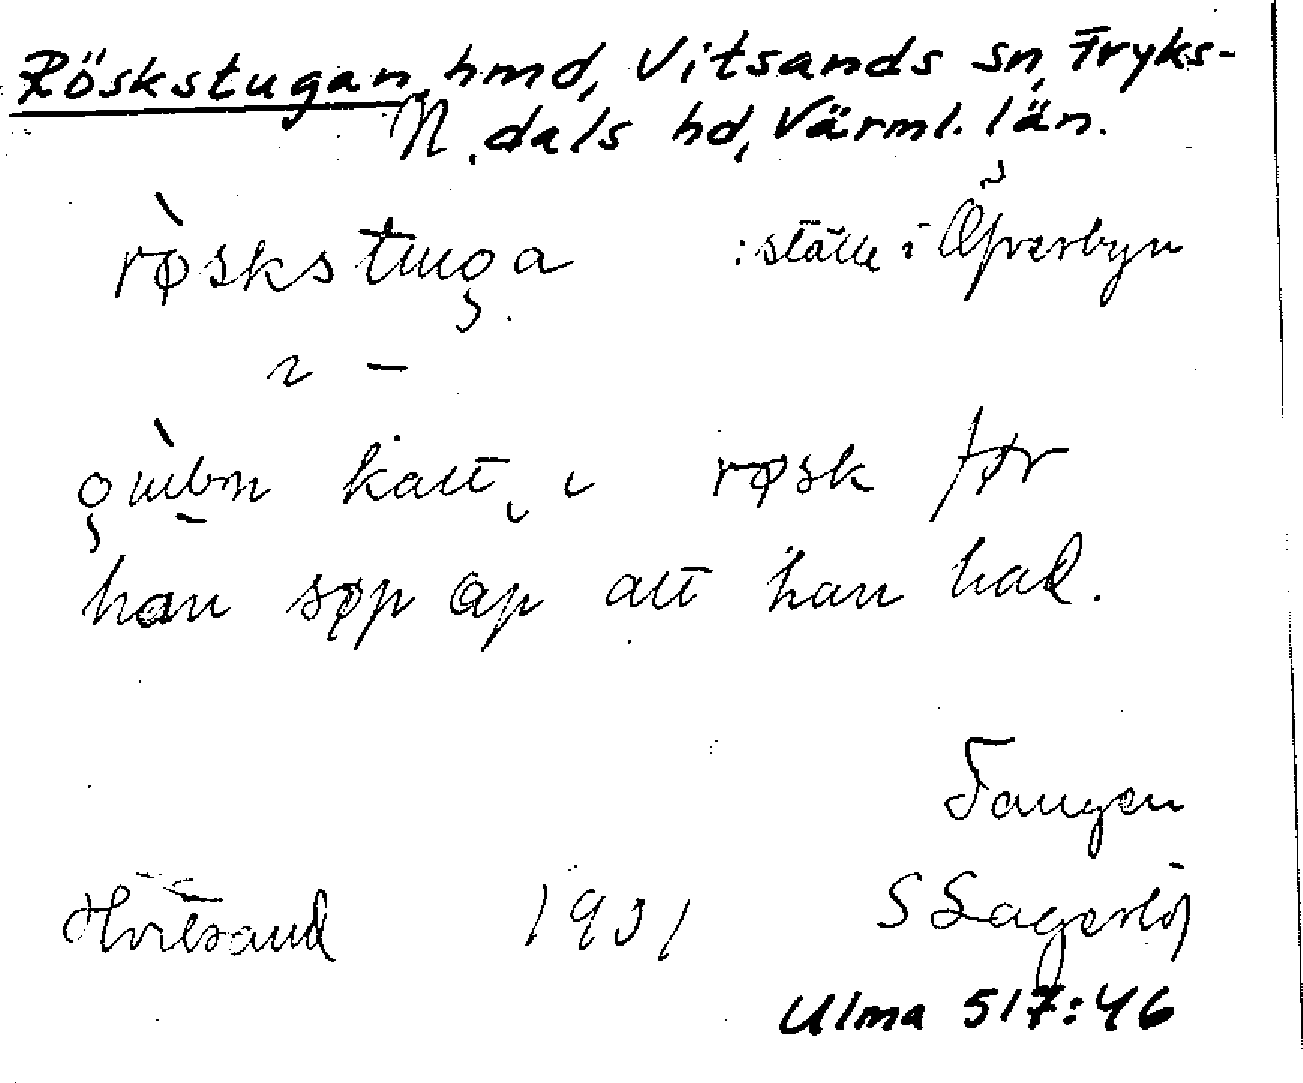 Röskstugan, hmd, Vitsands sn, Fryks-
N. dals hd, Värml. län.
røskstuga : ställe i Öfverbyn
2 –
gubn katt i røsk før
han søp op att han had.
Tangen
Hvitsand 1931 S Lagerlöf
Ulma 517:46